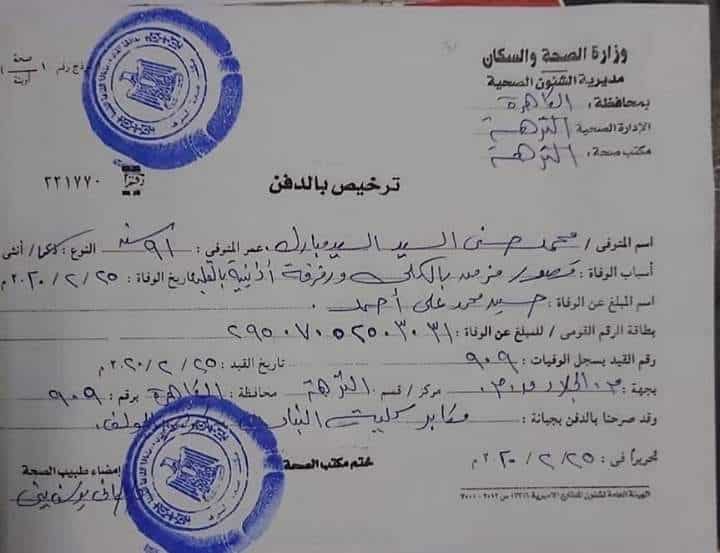 وزارة الصحة والسكان
مديرية الشئون الصحية
بمحافظة : القاهرة
الإدارة الصحية النزهة
مكتب صحة : النزهة
نموذج رقم ١ صحة
ترخيص بالدفن
٢٢١٧٧٠
اسم المتوفى / محمد حسنى السيد السيد مبارك عمر المتوفى : ٩١ سنة النوع : ذكر / أنثى
أسباب الوفاة : قصور مزمن بالكلى ورفرفة أذينية بالقلب تاريخ الوفاة : ٢٥ / ٢ / ٢٠٢٠ م
اسم المبلغ عن الوفاة : سيد محمد على أحمد
بطاقة الرقم القومى / للمبلغ عن الوفاة :
رقم القيد بسجل الوفيات : ٩٠٩ تاريخ القيد : ٢٥ / ٢ / ٢٠٢٠ م
بجهة : م. الجلاء مركز / قسم النزهة محافظة : القاهرة برقم : ٩٠٩
وقد صرحنا بالدفن بجبانة : مقابر كلية البنات
تحريراً فى : ٢٥ / ٢ / ٢٠٢٠ م
ختم مكتب الصحة
إمضاء طبيب الصحة
الهيئة العامة لشئون المطابع الأميرية